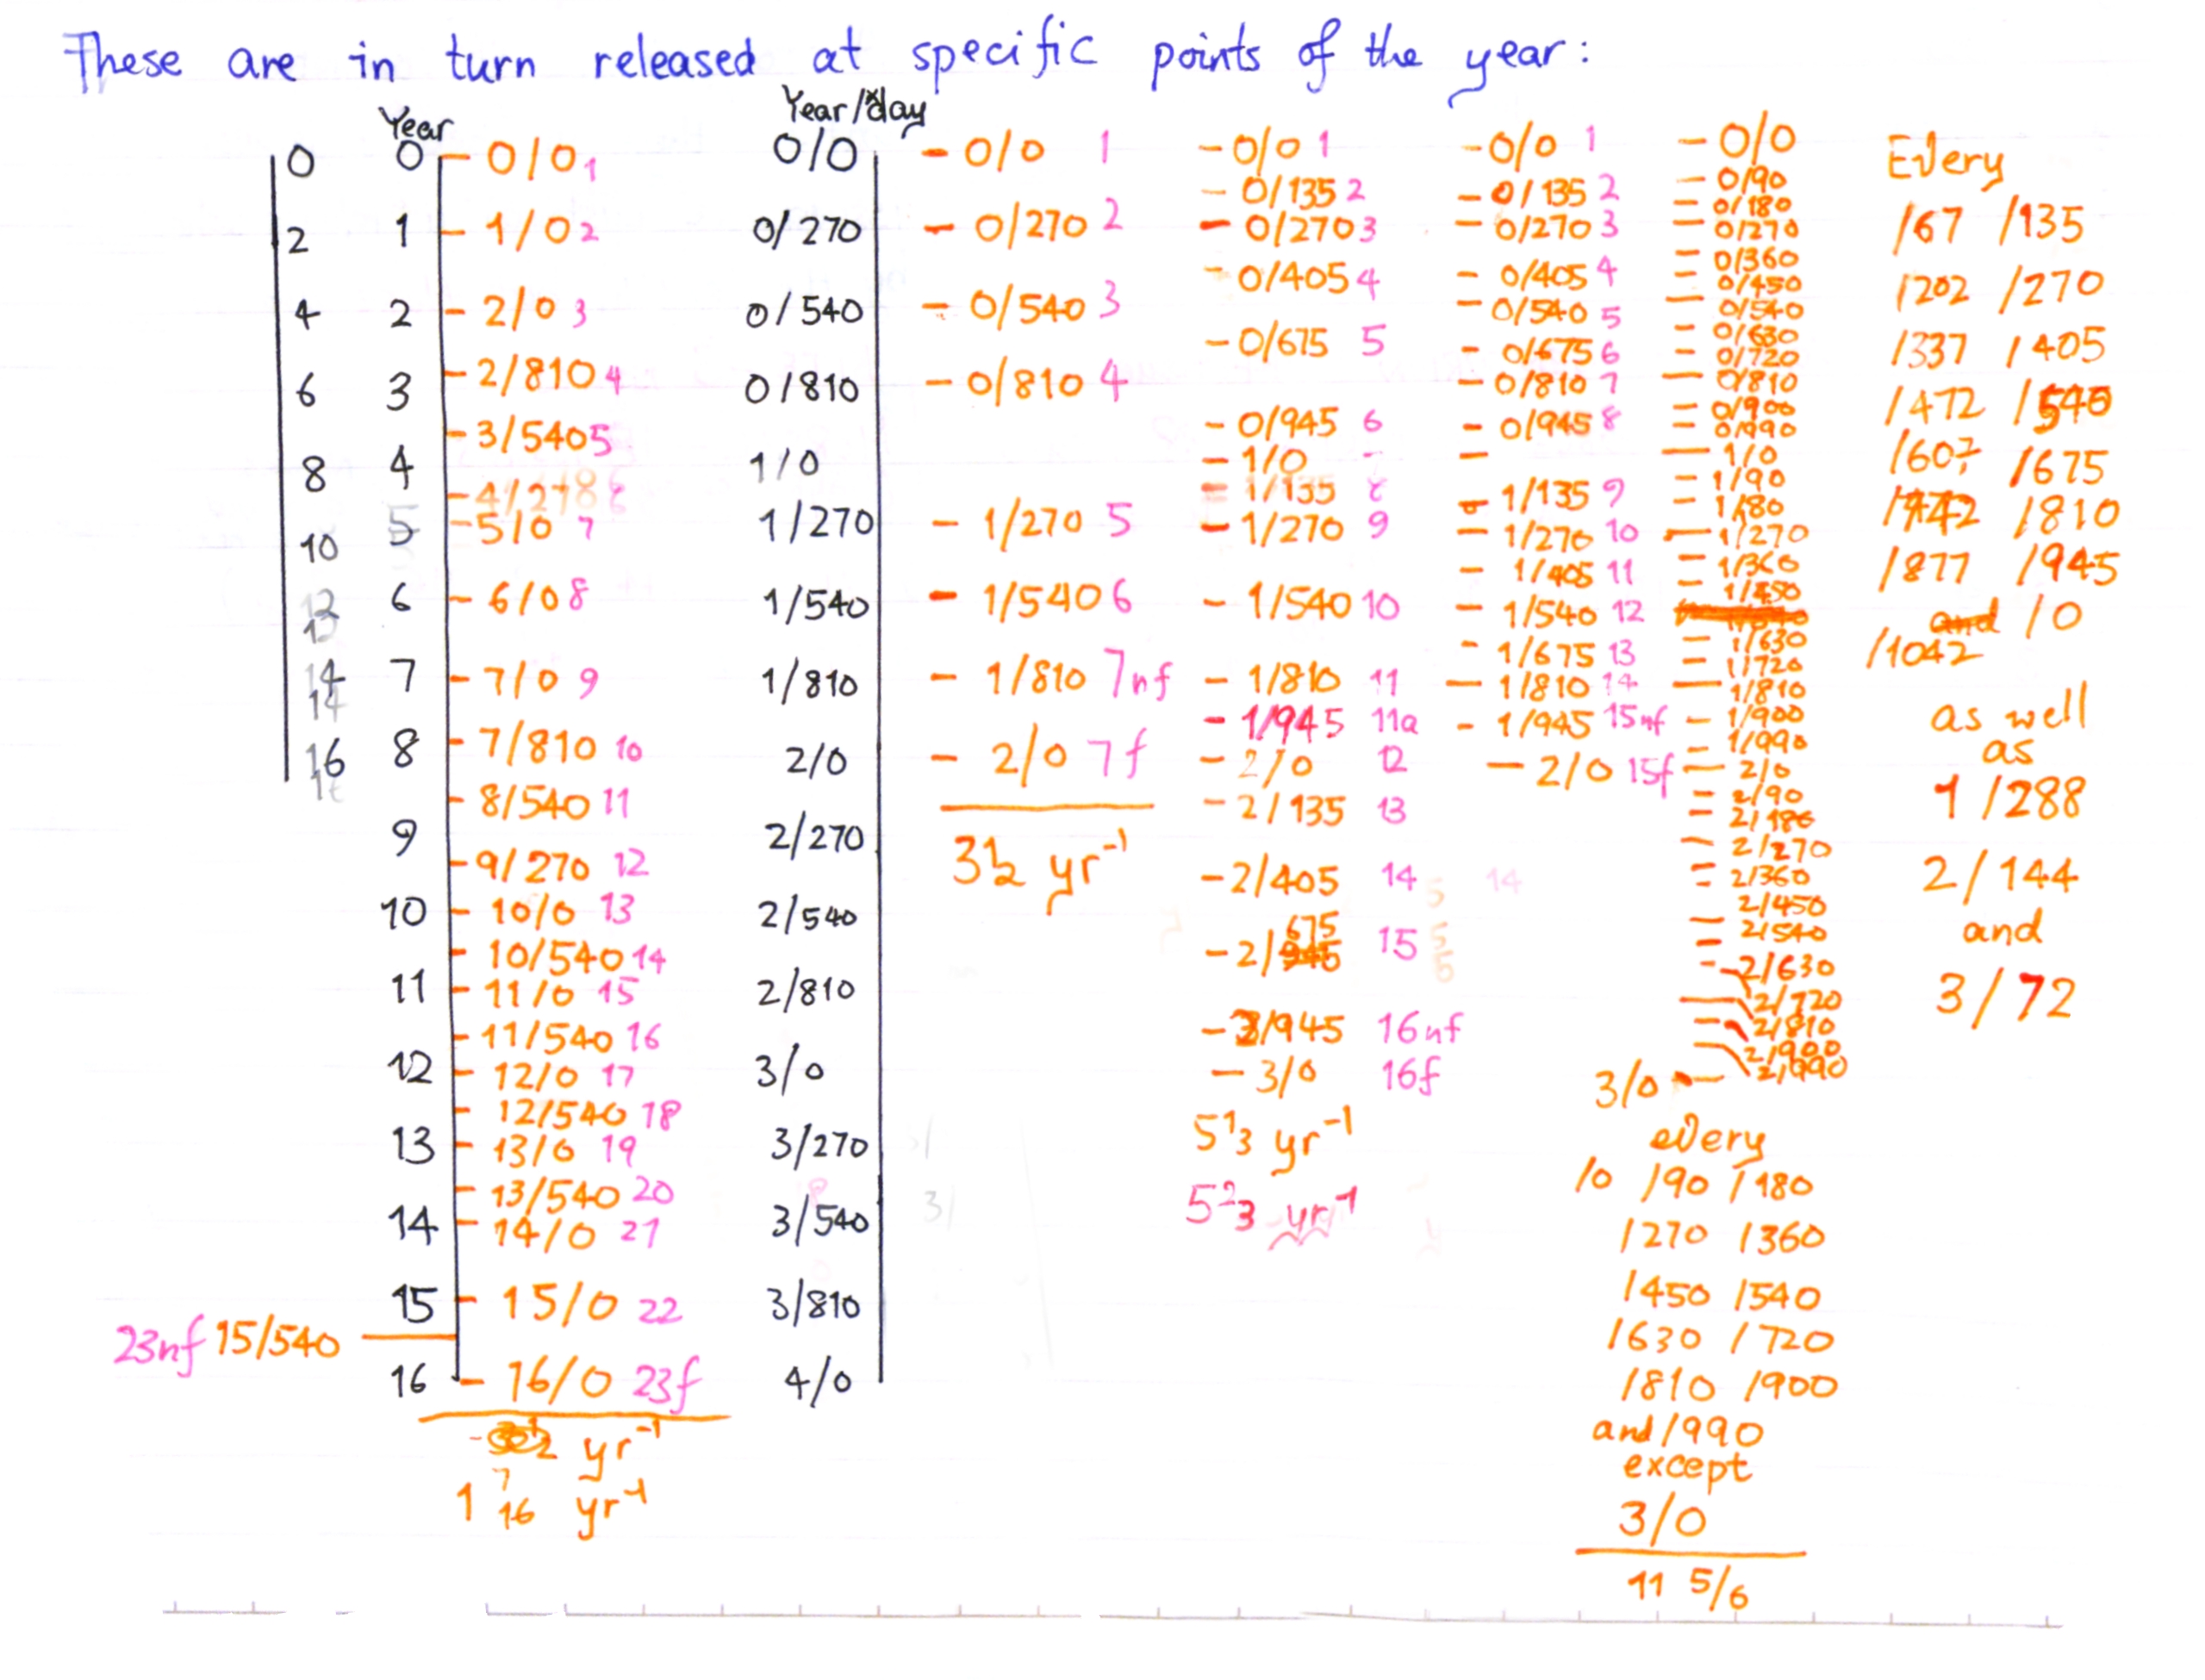 These are in turn released at specific points of the year:
Year
0
2
4
6
8
10
12
14
16
0 - 0/0 1
1 - 1/0 2
2 - 2/0 3
- 2/810 4
3
- 3/540 5
4
5 - 5/0 7
6 - 6/0 8
7 - 7/0 9
8 - 7/810 10
- 8/540 11
9
- 9/270 12
10 - 10/0 13
- 10/540 14
11 - 11/0 15
- 11/540 16
12 - 12/0 17
- 12/540 18
13 - 13/0 19
- 13/540 20
14 - 14/0 21
15 - 15/0 22
23nf 15/540
16 - 16/0 23f
yr-1
1 7/16 yr-1
Year/day
0/0
0/270
0/540
0/810
1/0
1/270
1/540
1/810
2/0
2/270
2/540
2/810
3/0
3/270
3/540
3/810
4/0
- 0/0 1
- 0/270 2
- 0/540 3
- 0/810 4
- 1/270 5
- 1/540 6
- 1/810 7nf
- 2/0 7f
3 1/2 yr-1
- 0/0 1
- 0/135 2
- 0/270 3
- 0/405 4
- 0/675 5
- 0/945 6
- 1/0
- 1/135
- 1/270 9
- 1/540 10
- 1/810 11
- 1/945 11a
- 2/0 12
- 2/135 13
- 2/405 14
- 2/675 15
- 2/945 16nf
- 3/0 16f
5 1/3 yr-1
5 2/3 yr-1
- 0/0 1
- 0/135 2
- 0/270 3
- 0/405 4
- 0/540 5
- 0/675 6
- 0/810 7
- 0/945 8
-
- 1/135 9
- 1/270 10
- 1/405 11
- 1/540 12
- 1/675 13
- 1/810 14
- 1/945 15nf
- 2/0 15f
14
- 0/0
- 0/90
- 0/180
- 0/270
- 0/360
- 0/450
- 0/540
- 0/630
- 0/720
- 0/810
- 0/900
- 0/990
- 1/0
- 1/90
- 1/80
- 1/270
- 1/360
- 1/450
- 1/630
- 1/720
- 1/810
- 1/900
- 1/990
- 2/0
- 2/90
- 2/180
- 2/270
- 2/360
2/450
- 2/540
- 2/630
- 2/720
- 2/810
- 2/900
2/990
3/0 -
every
/0 /90 /180
/270 /360
/450 /540
/630 /720
/810 /900
and /990
except
3/0
11 5/6
Every
/67 /135
/202 /270
/337 /405
/472 /540
/607 /675
/742 /810
/877 /945
and /0
/1042
as well
as
1/288
2/144
and
3/72